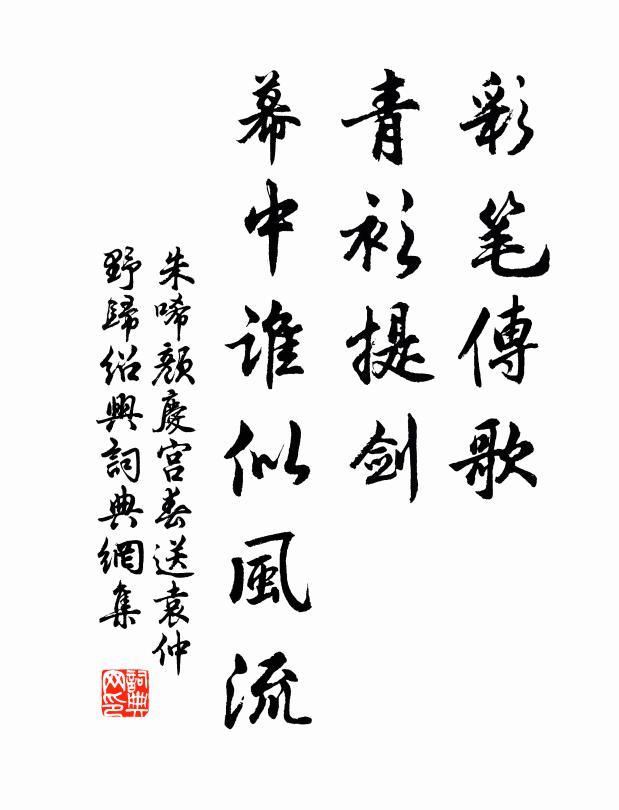 彩笔傳歌
青衫提剑
幕中谁似風流
朱唏颜慶宫春送袁仲
野歸绍興詞典網集
詞典
网印